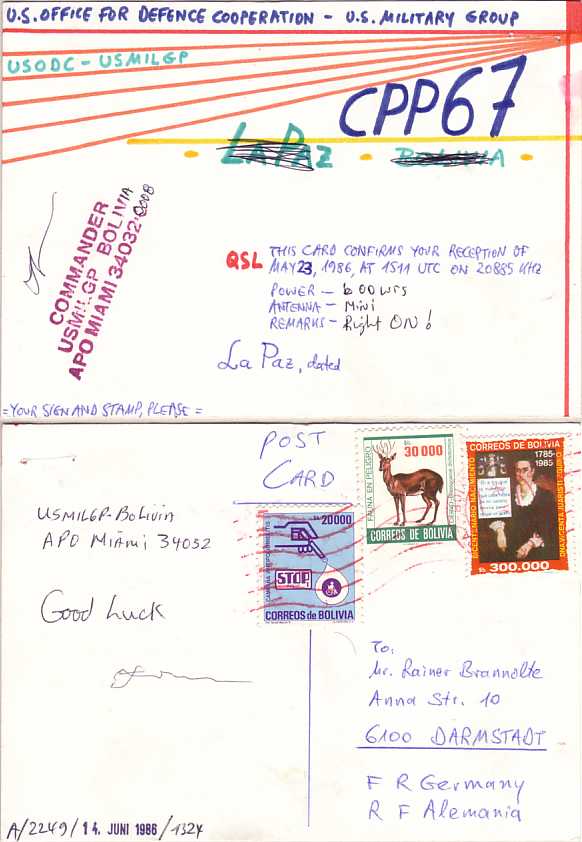 U.S. OFFICE FOR DEFENCE COOPERATION - U.S. MILITARY GROUP
USODC - USMILGP
CPP67
LA PAZ • BOLIVIA •
COMMANDER
USMILGP BOLIVIA
APO MIAMI 34032-0008
QSL THIS CARD CONFIRMS YOUR RECEPTION OF
MAY 23, 1986, AT 1511 UTC ON 20885 KHZ
POWER - 600 WTS
ANTENNA - Mini
REMARKS - Right ON!
La Paz, dated
=YOUR SIGN AND STAMP, PLEASE=
POST
CARD
USMILGP-Bolivia
APO Miami 34032
Good Luck
$b. 20000
STOP
CORREOS de BOLIVIA
$b. 30.000
FAUNA EN PELIGRO
CORREOS DE BOLIVIA
CORREOS DE BOLIVIA
1785-
1985
BICENTENARIO NACIMIENTO
$b. 300.000
To:
Mr. Rainer Brannolte
Anna Str. 10
6100 DARMSTADT
F R Germany
R F Alemania
A/2249/14. JUNI 1986/132y